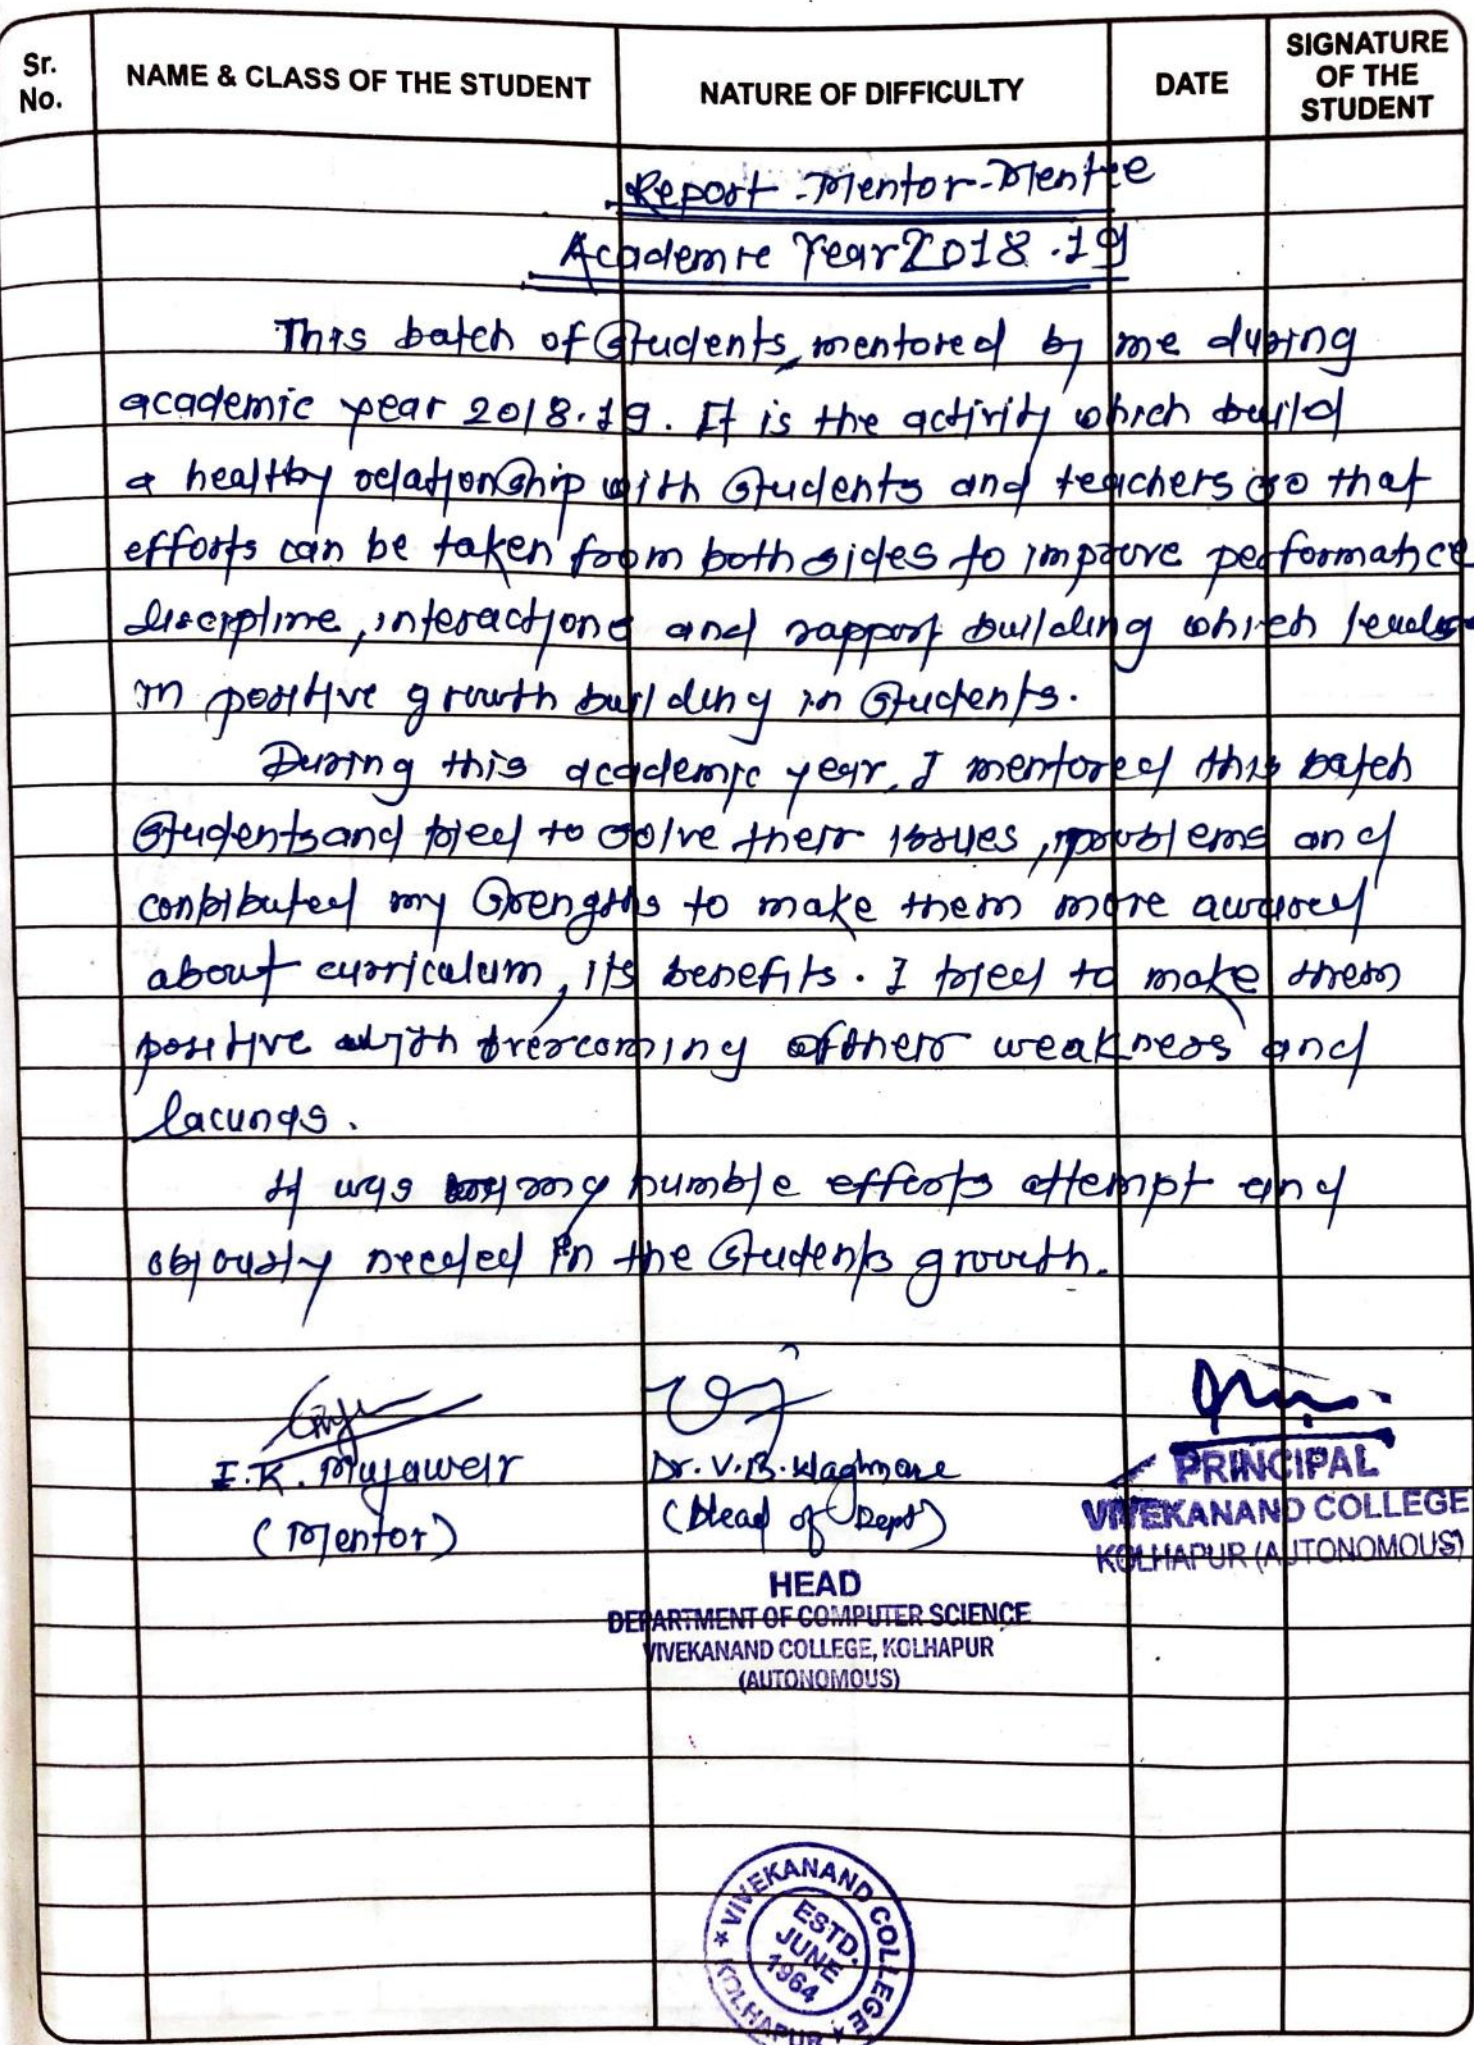 Sr. No.
NAME & CLASS OF THE STUDENT
NATURE OF DIFFICULTY
DATE
SIGNATURE OF THE STUDENT
Report -Mentor-Mentee
Academic Year 2018.19
This batch of students, mentored by me during
academic year 2018.19. It is the activity which build
a healthy relationship with students and teachers so that
efforts can be taken from both sides to improve performance
discipline, interactions and rapport building which leads
in positive growth building in students.
During this academic year, I mentored this batch
students and tried to solve their issues, problems and
contibuted my strengths to make them more awared
about curriculum, its benefits. I tried to make them
positive with overcoming of their weakness and
lacunas.
It was my humble efforts attempt and
obiously needed in the students growth.
I.K. Mujawar
(Mentor)
Dr. V.B. Waghmare
(Head of Dept)
HEAD
DEPARTMENT OF COMPUTER SCIENCE
VIVEKANAND COLLEGE, KOLHAPUR
(AUTONOMOUS)
PRINCIPAL
VIVEKANAND COLLEGE
KOLHAPUR (AUTONOMOUS)
VIVEKANAND COLLEGE
KOLHAPUR
ESTD.
JUNE
1964